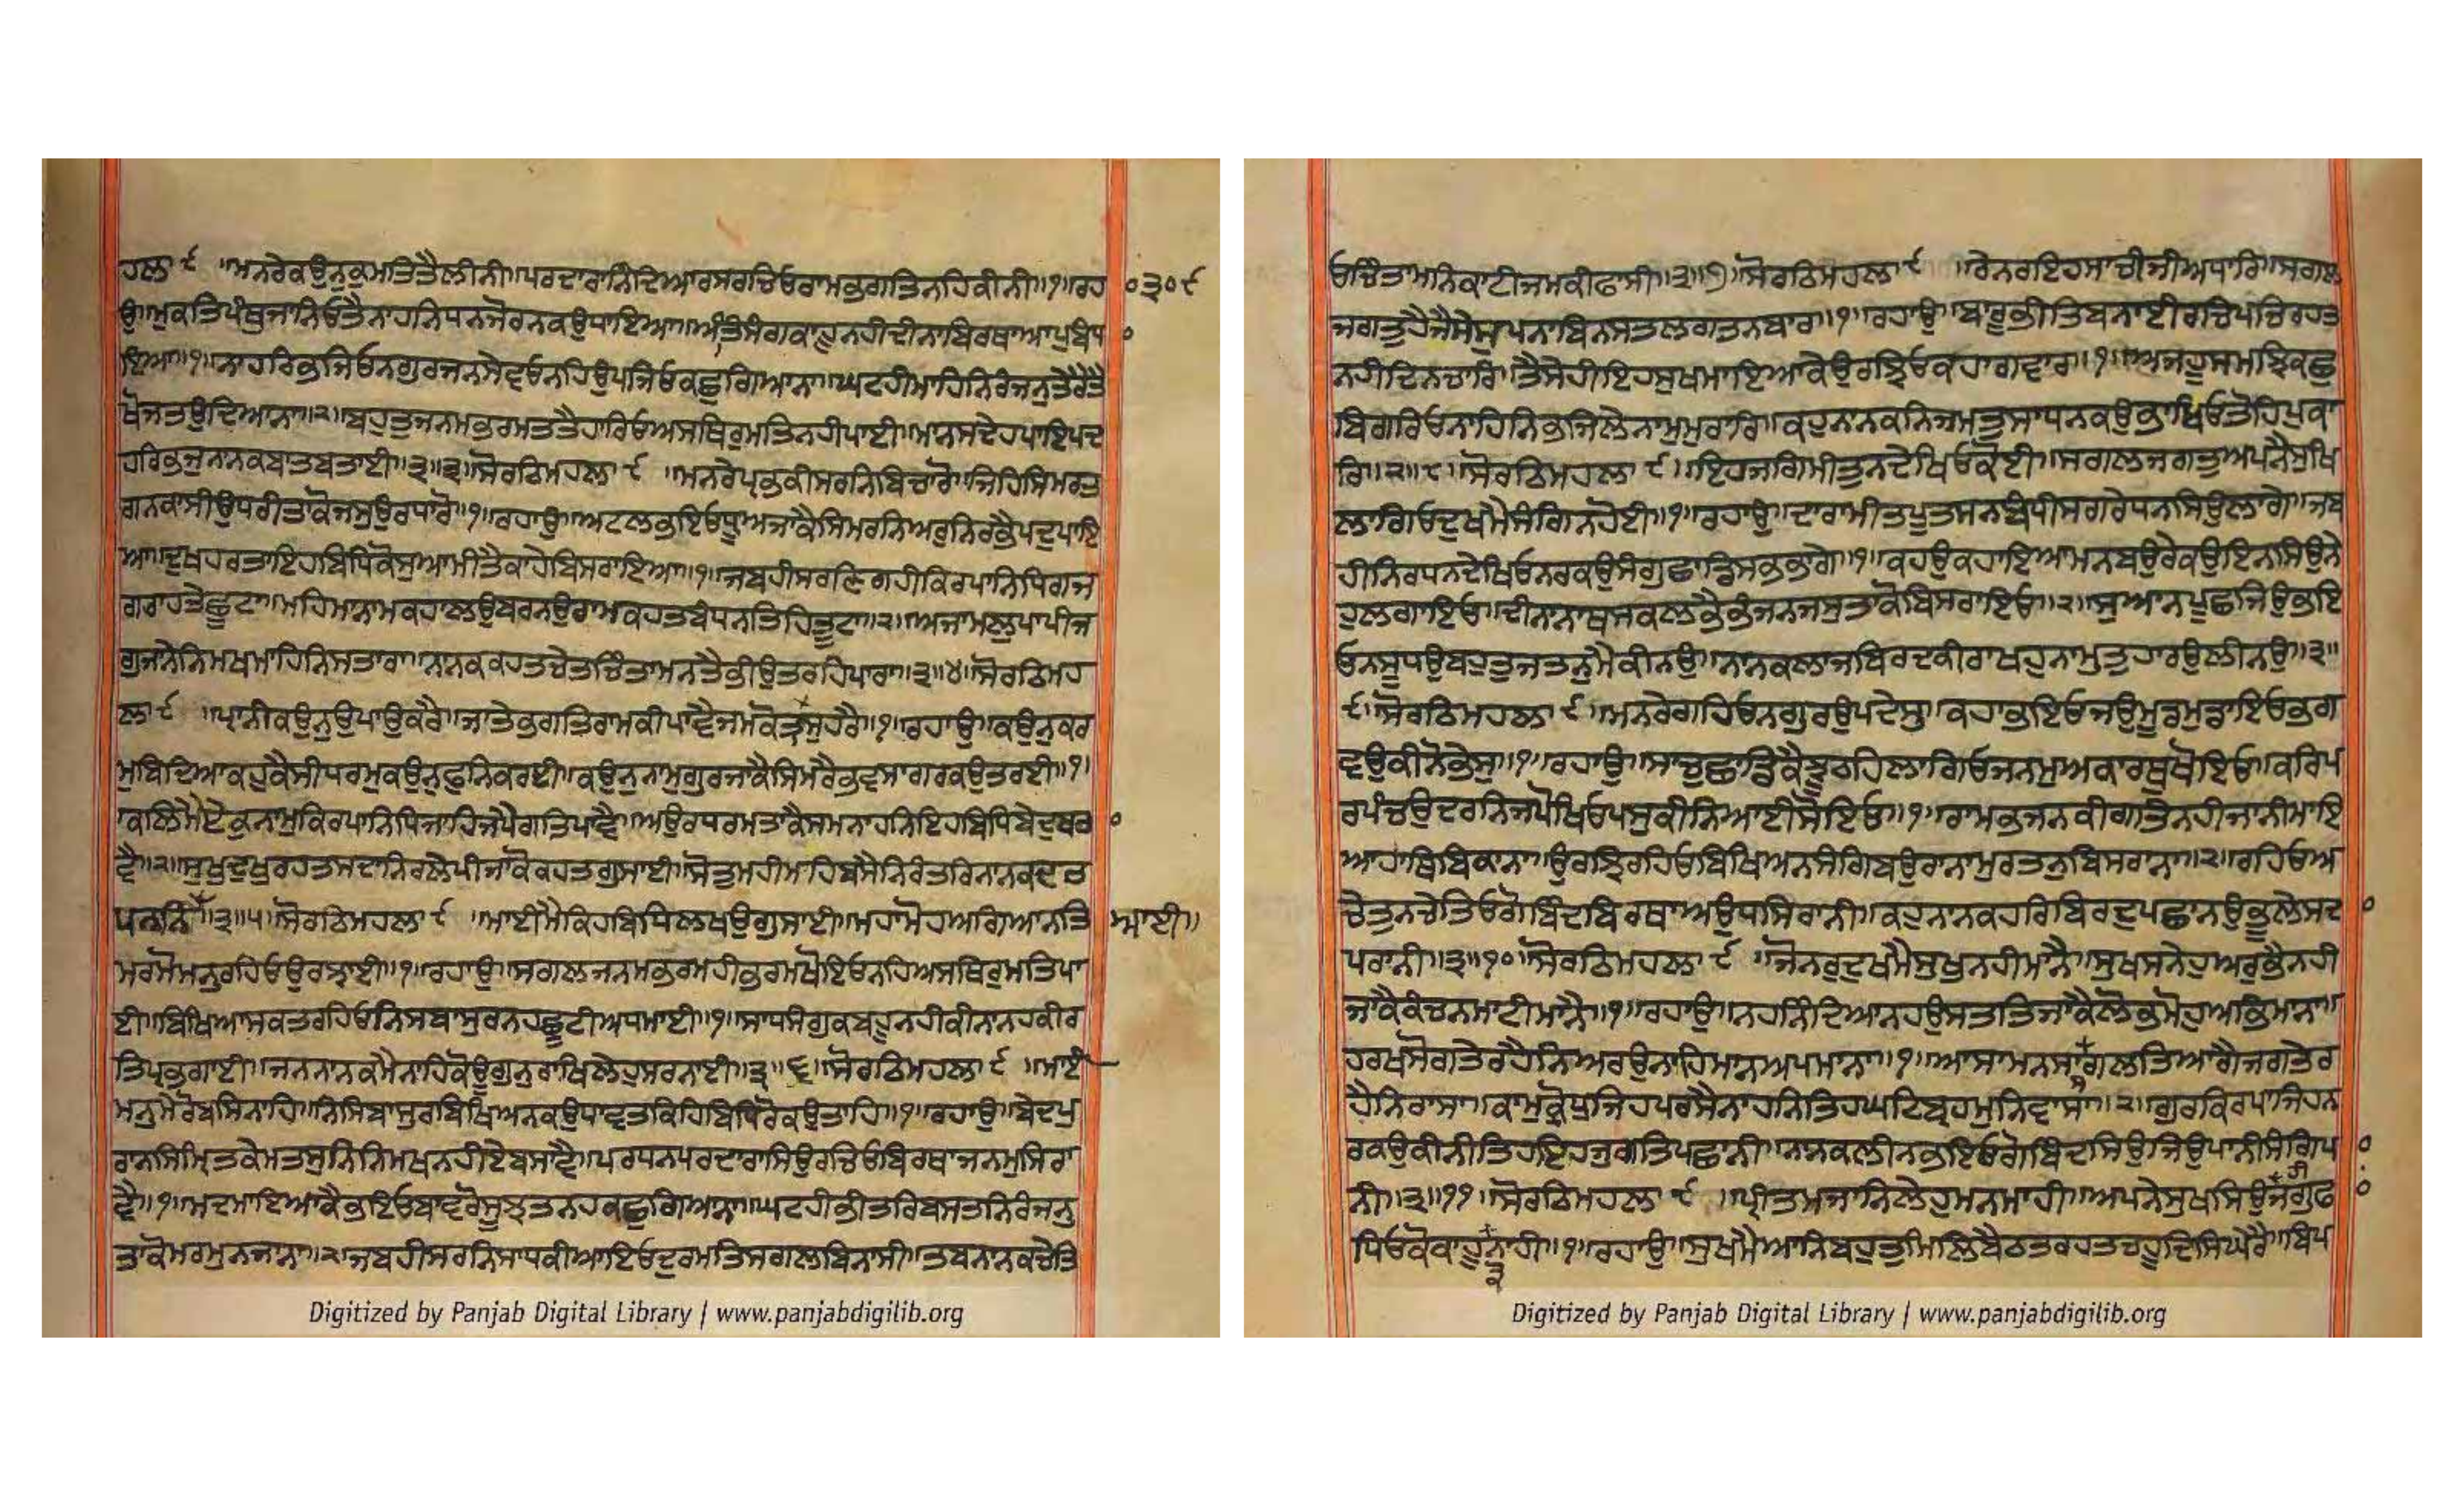 ਹਲਾ ੯ ॥ਮਨਰੇਕਉਨੁਕੁਮਤਿਤੈਲੀਨੀ॥ਪਰਦਾਰਾਨਿੰਦਿਆਰਸਰਚਿਓਰਾਮਭਗਤਿਨਹਿਕੀਨੀ॥੧॥ਰਹਾ ੦੩੦੯
ਉ॥ਮੁਕਤਿਪੰਥੁਜਾਨਿਓਤੈਨਾਹਨਿਧਨਜੋਰਨਕਉਧਾਇਆ॥ਅੰਤਿਸੰਗਕਾਹੂਨਹੀਦੀਨਾਬਿਰਥਾਆਪੁਬੰਧਾ ੦
ਇਆ॥੧॥ਨਾਹਰਿਭਜਿਓਨਗੁਰਜਨਸੇਵਿਓਨਹਿਉਪਜਿਓਕਛੁਗਿਆਨਾ॥ਘਟਹੀਮਾਹਿਨਿਰੰਜਨੁਤੇਰੈਤੈ
ਖੋਜਤਉਦਿਆਨਾ॥੨॥ਬਹੁਤੁਜਨਮਭਰਮਤਤੈਹਾਰਿਓਅਸਥਿਰੁਮਤਿਨਹੀਪਾਈ॥ਮਾਨਸਦੇਹਪਾਇਪਦ
ਹਰਿਭਜੁਨਾਨਕਬਾਤਬਤਾਈ॥੩॥੩॥ਸੋਰਠਿਮਹਲਾ ੯ ॥ਮਨਰੇਪ੍ਰਭਕੀਸਰਨਿਬਿਚਾਰੋ॥ਜਿਹਿਸਿਮਰਤ
ਗਨਕਾਸੀਉਧਰੀਤਾਕੋਜਸੁਉਰਧਾਰੋ॥੧॥ਰਹਾਉ॥ਅਟਲਭਇਓਧ੍ਰੂਅਜਾਕੈਸਿਮਰਨਿਅਰੁਨਿਰਭੈਪਦੁਪਾਇ
ਆ॥ਦੁਖਹਰਤਾਇਹਬਿਧਿਕੋਸੁਆਮੀਤੈਕਾਹੇਬਿਸਰਾਇਆ॥੧॥ਜਬਹੀਸਰਣਿਗਹੀਕਿਰਪਾਨਿਧਿਗਜ
ਗਰਾਹਤੇਛੂਟਾ॥ਮਹਿਮਾਨਾਮਕਹਾਲਉਬਰਨਉਰਾਮਕਹਤਬੰਧਨਤਿਹਿਤੂਟਾ॥੨॥ਅਜਾਮਲੁਪਾਪੀਜ
ਗੁਜਾਨੇਨਿਮਖਮਾਹਿਨਿਸਤਾਰਾ॥ਨਾਨਕਕਹਤਚੇਤਚਿੰਤਾਮਨਤੈਭੀਉਤਰਹਿਪਾਰਾ॥੩॥੪॥ਸੋਰਠਿਮਹ
ਲਾ ੯ ॥ਪ੍ਰਾਨੀਕਉਨੁਉਪਾਉਕਰੈ॥ਜਾਤੇਭਗਤਿਰਾਮਕੀਪਾਵੈਜਮਕੋਤ੍ਰਾਸੁਹਰੈ॥੧॥ਰਹਾਉ॥ਕਉਨੁਕਰ
ਮੁਬਿਦਿਆਕਹੁਕੈਸੀਧਰਮੁਕਉਨੁਫੁਨਿਕਰਈ॥ਕਉਨੁਨਾਮੁਗੁਰਜਾਕੈਸਿਮਰੈਭਵਸਾਗਰਕਉਤਰਈ॥੧॥
ਕਲਿਮੈਏਕੁਨਾਮੁਕਿਰਪਾਨਿਧਿਜਾਹਿਜਪੈਗਤਿਪਾਵੈ॥ਅਉਰਧਰਮਤਾਕੈਸਮਨਾਹਨਿਇਹਬਿਧਿਬੇਦੁਬਤਾ ੦
ਵੈ॥੨॥ਸੁਖੁਦੁਖੁਰਹਤਸਦਾਨਿਰਲੇਪੀਜਾਕੋਕਹਤਗੁਸਾਈ॥ਸੋਤੁਮਹੀਮਹਿਬਸੈਨਿਰੰਤਰਿਨਾਨਕਦਰ
ਪਨਨਿ॥੩॥੫॥ਸੋਰਠਿਮਹਲਾ ੯ ॥ਮਾਈਮੈਕਿਹਬਿਧਿਲਖਉਗੁਸਾਈ॥ਮਹਾਮੋਹਅਗਿਆਨਤਿ ਆਈ॥
ਮਰਮੋਮਨੁਰਹਿਓਉਰਝਾਈ॥੧॥ਰਹਾਉ॥ਸਗਲਜਨਮਭਰਮਹੀਭਰਮਖੋਇਓਨਹਿਅਸਥਿਰੁਮਤਿਪਾ
ਈ॥ਬਿਖਿਆਸਕਤਰਹਿਓਨਿਸਬਾਸੁਰਨਹਛੂਟੀਅਧਮਾਈ॥੧॥ਸਾਧਸੰਗੁਕਬਹੂਨਹੀਕੀਨਾਨਹਕੀਰ
ਤਿਪ੍ਰਭਗਾਈ॥ਜਨਨਾਨਕਮੈਨਾਹਿਕੋਊਗੁਨੁਰਾਖਿਲੇਹੁਸਰਨਾਈ॥੩॥੬॥ਸੋਰਠਿਮਹਲਾ ੯ ॥ਮਾਈ
ਮਨੁਮੇਰੋਬਸਿਨਾਹਿ॥ਨਿਸਿਬਾਸੁਰਬਿਖਿਅਨਕਉਧਾਵਤਕਿਹਿਬਿਧਿਰੋਕਉਤਾਹਿ॥੧॥ਰਹਾਉ॥ਬੇਦਪੁ
ਰਾਨਸਿਮ੍ਰਿਤਕੇਮਤਸੁਨਿਨਿਮਖਨਹੀਏਬਸਾਵੈ॥ਪਰਧਨਪਰਦਾਰਾਸਿਉਰਚਿਓਬਿਰਥਾਜਨਮੁਸਿਰਾ
ਵੈ॥੧॥ਮਦਮਾਇਆਕੈਭਇਓਬਾਵਰੋਸੂਝਤਨਹਕਛੁਗਿਆਨਾ॥ਘਟਹੀਭੀਤਰਿਬਸਤਨਿਰੰਜਨੁ
ਤਾਕੋਮਰਮੁਨਜਾਨਾ॥੨॥ਜਬਹੀਸਰਨਿਸਾਧਕੀਆਇਓਦੁਰਮਤਿਸਗਲਬਿਨਾਸੀ॥ਤਬਨਾਨਕਚੇਤਿ
Digitized by Panjab Digital Library | www.panjabdigilib.org
ਓਚਿੰਤਾਮਨਿਕਾਟੀਜਮਕੀਫਾਸੀ॥੩॥੭॥ਸੋਰਠਿਮਹਲਾ ੯ ॥ਰੇਨਰਇਹਸਾਚੀਜੀਅਧਾਰਿ॥ਸਗਲ
ਜਗਤੁਹੈਜੈਸੇਸੁਪਨਾਬਿਨਸਤਲਗਤਨਬਾਰ॥੧॥ਰਹਾਉ॥ਬਾਰੂਭੀਤਿਬਨਾਈਰਚਿਪਚਿਰਹਤ
ਨਹੀਦਿਨਚਾਰਿ॥ਤੈਸੇਹੀਇਹਸੁਖਮਾਇਆਕੇਉਰਝਿਓਕਹਾਗਵਾਰ॥੧॥ਅਜਹੂਸਮਝਿਕਛੁ
ਬਿਗਰਿਓਨਾਹਿਨਿਭਜਿਲੇਨਾਮੁਮੁਰਾਰਿ॥ਕਹੁਨਾਨਕਨਿਜਮਤੁਸਾਧਨਕਉਭਾਖਿਓਤੋਹਿਪੁਕਾ
ਰਿ॥੨॥੮॥ਸੋਰਠਿਮਹਲਾ ੯॥ਇਹਜਗਿਮੀਤੁਨਦੇਖਿਓਕੋਈ॥ਸਗਲਜਗਤੁਅਪਨੈਸੁਖਿ
ਲਾਗਿਓਦੁਖਮੈਸੰਗਿਨਹੋਈ॥੧॥ਰਹਾਉ॥ਦਾਰਾਮੀਤਪੂਤਸਨਬੰਧੀਸਗਰੇਧਨਸਿਉਲਾਗੇ॥ਜਬ
ਹੀਨਿਰਧਨਦੇਖਿਓਨਰਕਉਸੰਗੁਛਾਡਿਸਭਭਾਗੇ॥੧॥ਕਹਉਕਹਾਇਆਮਨਬਉਰੇਕਉਇਨਸਿਉਨੇ
ਹੁਲਗਾਇਓ॥ਦੀਨਾਨਾਥਸਕਲਭੈਭੰਜਨਜਸੁਤਾਕੋਬਿਸਰਾਇਓ॥੨॥ਸੁਆਨਪੂਛਜਿਉਭਇ
ਓਨਸੂਧਉਬਹੁਤੁਜਤਨੁਮੈਕੀਨਉ॥ਨਾਨਕਲਾਜਬਿਰਦਕੀਰਾਖਹੁਨਾਮੁਤੁਹਾਰਉਲੀਨਉ॥੩॥
੯॥ਸੋਰਠਿਮਹਲਾ ੯॥ਮਨਰੇਗਹਿਓਨਗੁਰਉਪਦੇਸੁ॥ਕਹਾਭਇਓਜਉਮੂਡੁਮੁਡਾਇਓਭਗ
ਵਉਕੀਨੋਭੇਸੁ॥੧॥ਰਹਾਉ॥ਸਾਚੁਛਾਡਿਕੈਝੂਠਹਿਲਾਗਿਓਜਨਮੁਅਕਾਰਥੁਖੋਇਓ॥ਕਰਿਪ
ਰਪੰਚਉਦਰਨਿਜਪੋਖਿਓਪਸੁਕੀਨਿਆਈਸੋਇਓ॥੧॥ਰਾਮਭਜਨਕੀਗਤਿਨਹੀਜਾਨੀਮਾਇ
ਆਹਾਥਿਬਿਕਾਨਾ॥ਉਰਝਿਰਹਿਓਬਿਖਿਅਨਸੰਗਿਬਉਰਾਨਾਮੁਰਤਨੁਬਿਸਰਾਨਾ॥੨॥ਰਹਿਓਅ
ਚੇਤੁਨਚੇਤਿਓਗੋਬਿੰਦਬਿਰਥਾਅਉਧਸਿਰਾਨੀ॥ਕਹੁਨਾਨਕਹਰਿਬਿਰਦੁਪਛਾਨਉਭੂਲੇਸਦ ੦
ਪਰਾਨੀ॥੩॥੧੦॥ਸੋਰਠਿਮਹਲਾ ੯ ॥ਜੋਨਰੁਦੁਖਮੈਸੁਖੁਨਹੀਮਾਨੈ॥ਸੁਖਸਨੇਹੁਅਰੁਭੈਨਹੀ
ਜਾਕੈਕੰਚਨਮਾਟੀਮਾਨੈ॥੧॥ਰਹਾਉ॥ਨਹਨਿੰਦਿਆਨਹਉਸਤਤਿਜਾਕੈਲੋਭੁਮੋਹੁਅਭਿਮਾਨਾ॥
ਹਰਖਸੋਗਤੇਰਹੈਨਿਆਰਉਨਾਹਿਮਾਨਅਪਮਾਨਾ॥੧॥ਆਸਾਮਨਸਾਗਲਤਿਆਗੈਜਗਤੇਰ
ਹੈਨਿਰਾਸਾ॥ਕਾਮੁਕ੍ਰੋਧੁਜਿਹਪਰਸੈਨਾਹਨਿਤਿਹਘਟਿਬ੍ਰਹਮੁਨਿਵਾਸਾ॥੨॥ਗੁਰਕਿਰਪਾਜਿਹਨ
ਰਕਉਕੀਨੀਤਿਹਇਹਜੁਗਤਿਪਛਾਨੀ॥ਨਾਨਕਲੀਨਭਇਓਗੋਬਿੰਦਸਿਉਜਿਉਪਾਨੀਸੰਗਿਪਾ ੦
ਨੀ॥੩॥੧੧॥ਸੋਰਠਿਮਹਲਾ ੯ ॥ਪ੍ਰੀਤਮਜਾਨਿਲੇਹੁਮਨਮਾਹੀ॥ਅਪਨੇਸੁਖਸਿਉਜਗੁਫਾ ੦
ਧਿਓਕੋਕਾਹੂਨਾਹੀ॥੧॥ਰਹਾਉ॥ਸੁਖਮੈਆਨਿਬਹੁਤੁਮਿਲਿਬੈਠਤਰਹਤਚਹੂਦਿਸਿਘੇਰੈ॥ਬਿਪ
Digitized by Panjab Digital Library | www.panjabdigilib.org